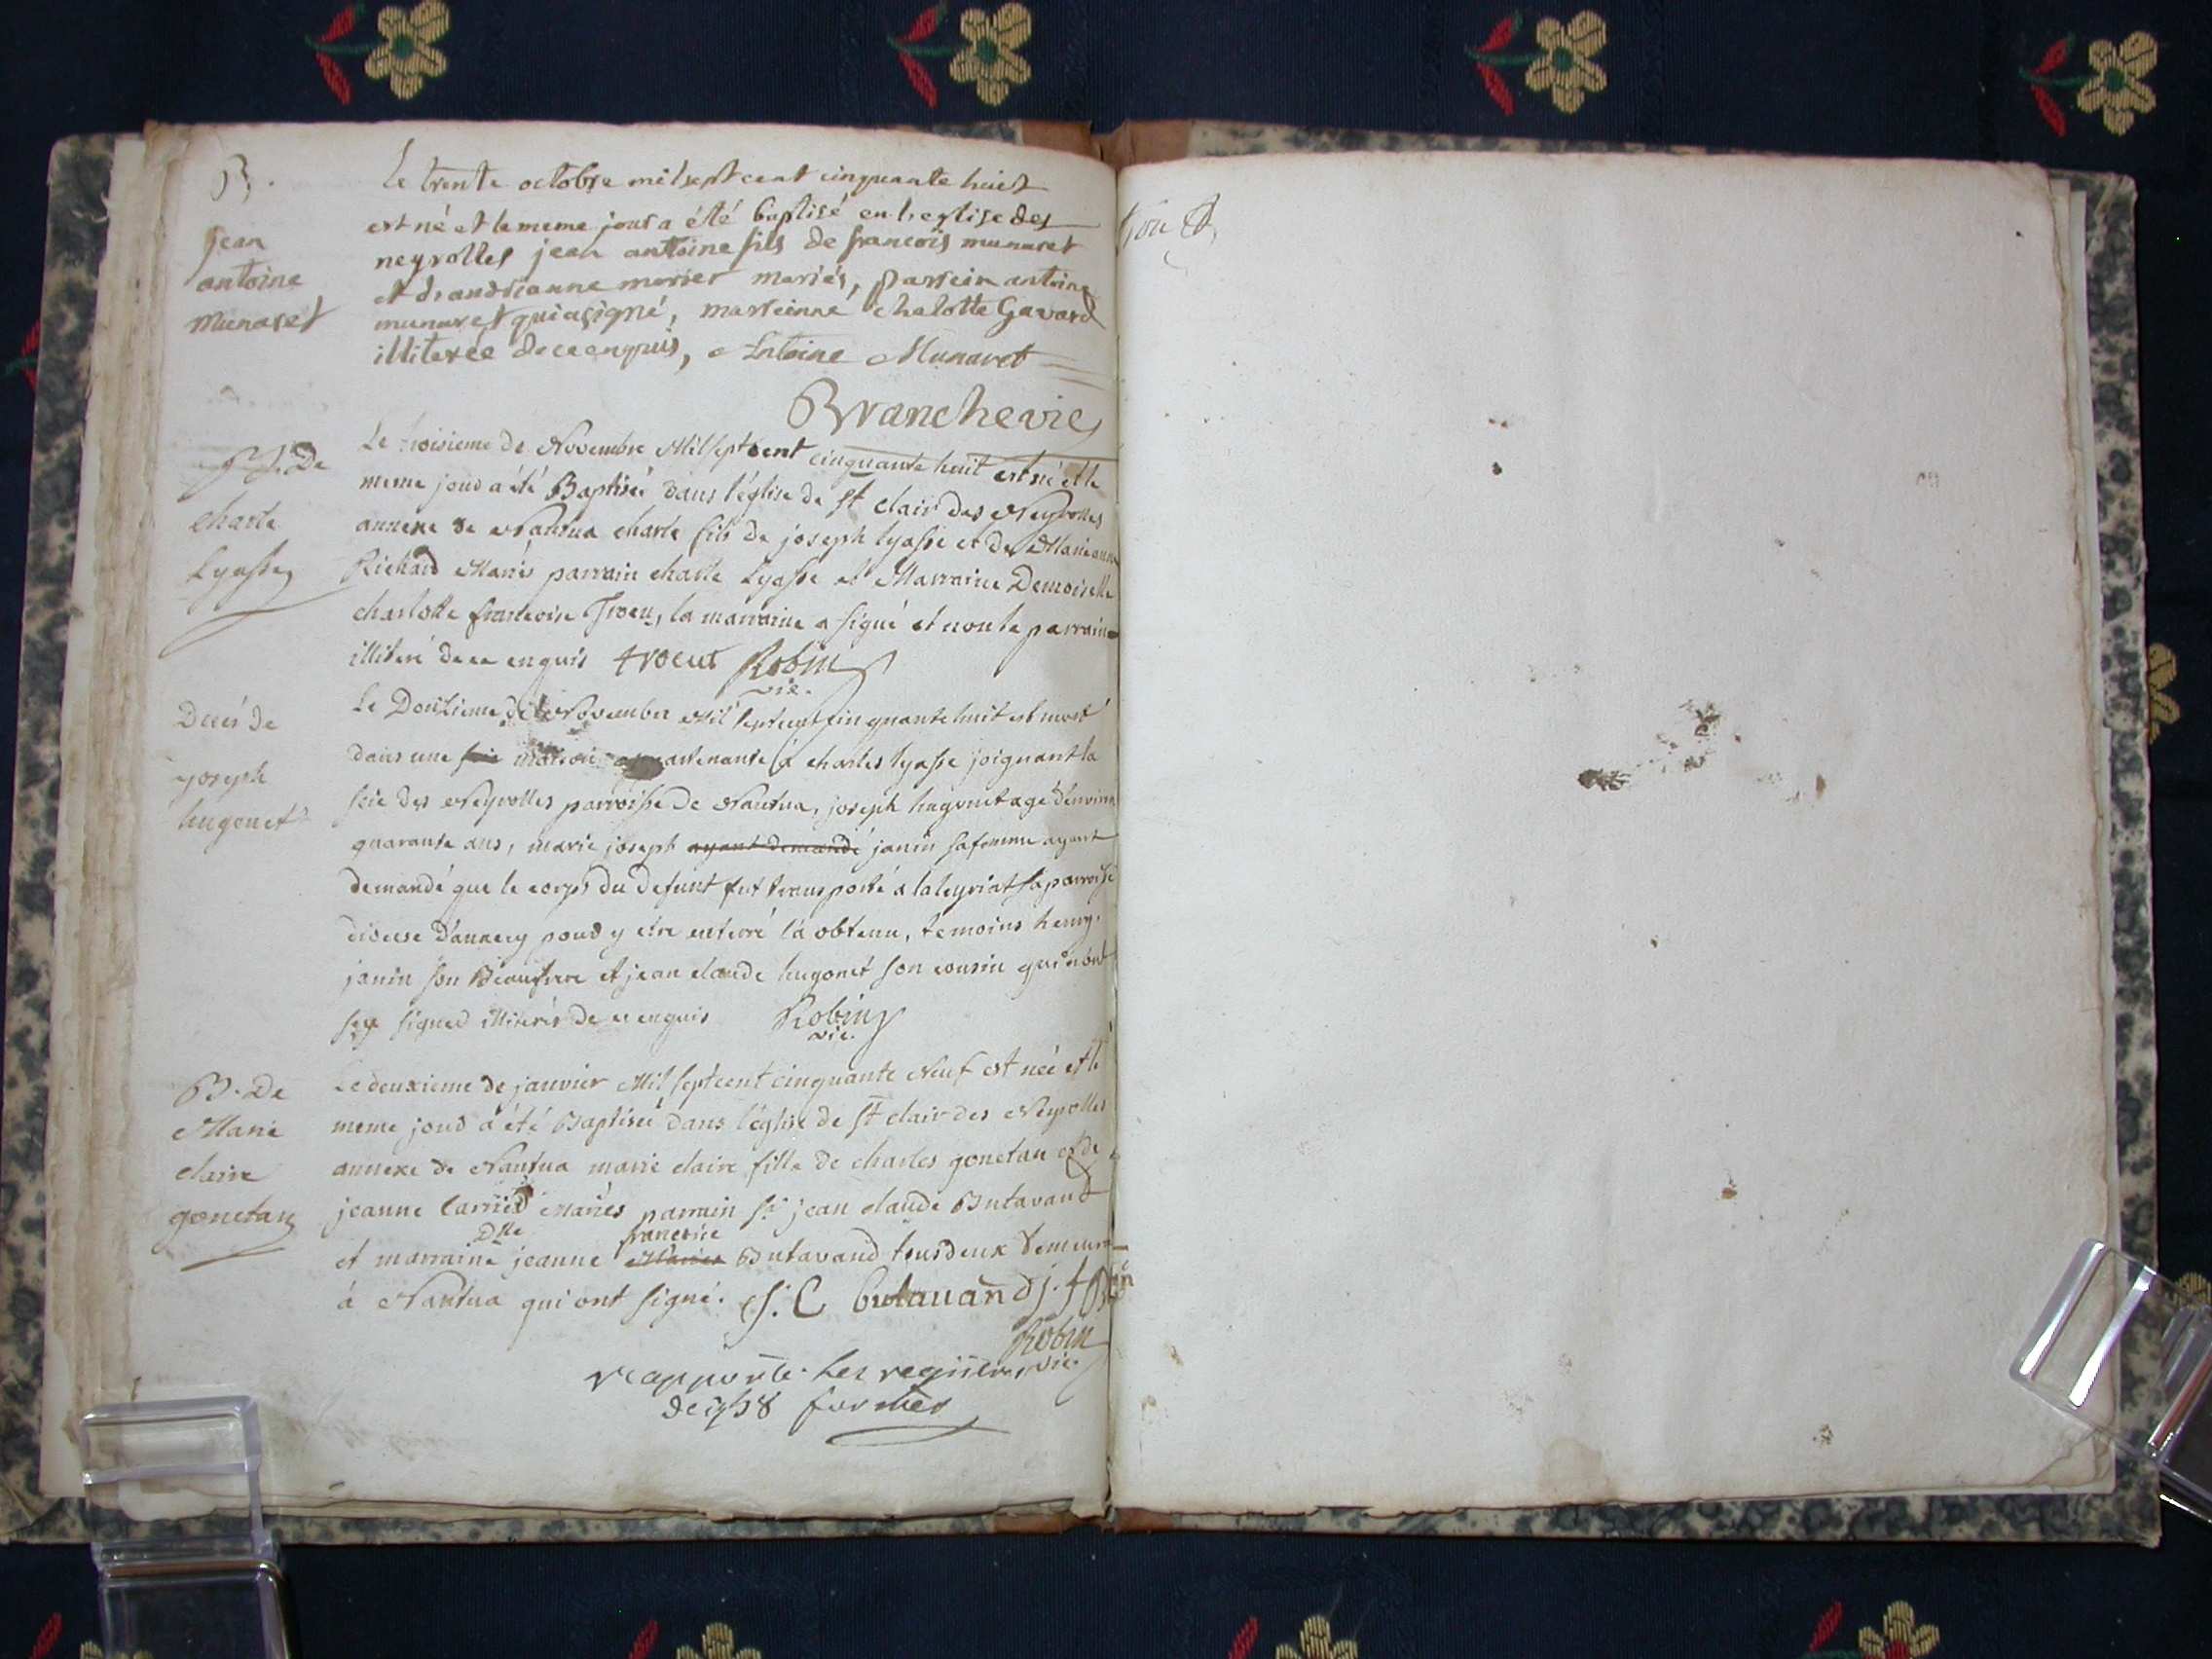 B.
jean
antoine
munaret
Le trente octobre mil sept cent cinquante huict
est né et le meme jour a été baptisé en l'eglise des
neyrolles jean antoine fils de francois munaret
et d'andrianne mercier mariés, parrein antoine
munaret qui a signé, marreinne chalotte Gavard
illiterée de ce enquis, Antoine Munaret
Branche vic
B. De
charle
Lyasse
Le troisieme de Novembre Mil sept cent cinquante huit est né et le
meme jour a été Baptisé dans l'église de St clair des Neyrolles
annexe de Nantua charle fils de joseph lyasse et de Marie anne
Richard Mariés parrain charle Lyasse et Marraine Demoiselle
charlotte francoise Trocu, la marraine a signé et non le parrain
illiteré de ce enquis trocut Robin
vic.
Decés de
joseph
hugonet
Le Douzieme de Novembre Mil sept cent cinquante huit est mort
dans une scie maison appartenante a charles lyasse joignant la
scie des Neyrolles parroisse de Nantua, joseph hugonet agé d'environ
quarante ans, marie joseph ayant demandé janin sa femme ayant
demandé que le corps du defunt fut transporté a laleyriat sa parroisse
diocese d'annecy pour y etre enterré l'a obtenu, temoins henry
janin son Beaufrere et jean claude hugonet son cousin qui n'ont
sçu signer illiterés de ce enquis Robin
vic.
B. De
Marie
claire
gonetan
Le deuxieme de janvier Mil sept cent cinquante Neuf est née et le
meme jour a été Baptisée dans l'église de St clair des Neyrolles
annexe de Nantua marie claire fille de charles gonetan et de
jeanne Carrier mariés parrain Sr jean claude Butavand
Dlle francoise
et marraine jeanne Butavand tous deux demeurant
à Nantua qui ont signé. J. C butauand j. f
Robin
vic.
rapporte les registres
de 1758
tou